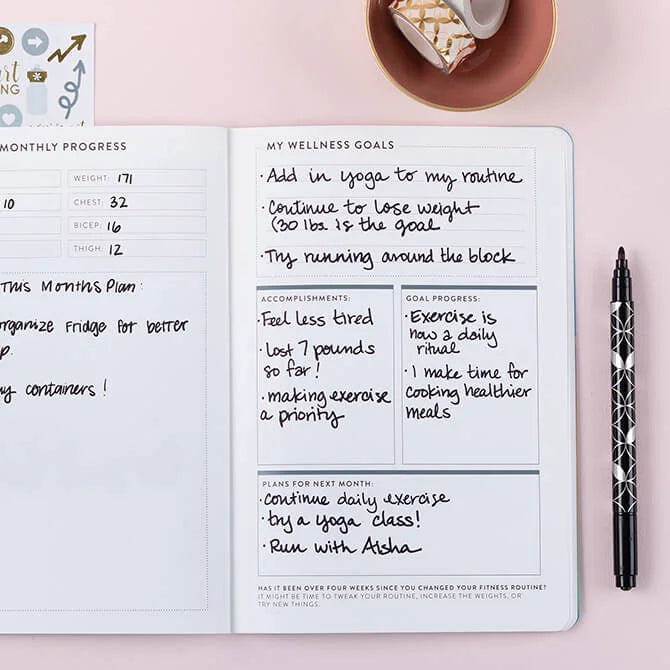 MONTHLY PROGRESS
WEIGHT: 171
10 CHEST: 32
BICEP: 16
THIGH: 12
This Months Plan:
organize Fridge for better
containers!
MY WELLNESS GOALS
· Add in yoga to my routine
· Continue to lose weight
(30 lbs. is the goal
· Try running around the block
ACCOMPLISHMENTS:
· Feel less tired
· lost 7 pounds
so far!
· making exercise
a priority
GOAL PROGRESS:
· Exercise is
now a daily
ritual
· I make time for
cooking healthier
meals
PLANS FOR NEXT MONTH:
· continue daily exercise
· try a yoga class!
· Run with Aisha
HAS IT BEEN OVER FOUR WEEKS SINCE YOU CHANGED YOUR FITNESS ROUTINE?
IT MIGHT BE TIME TO TWEAK YOUR ROUTINE, INCREASE THE WEIGHTS, OR
TRY NEW THINGS.